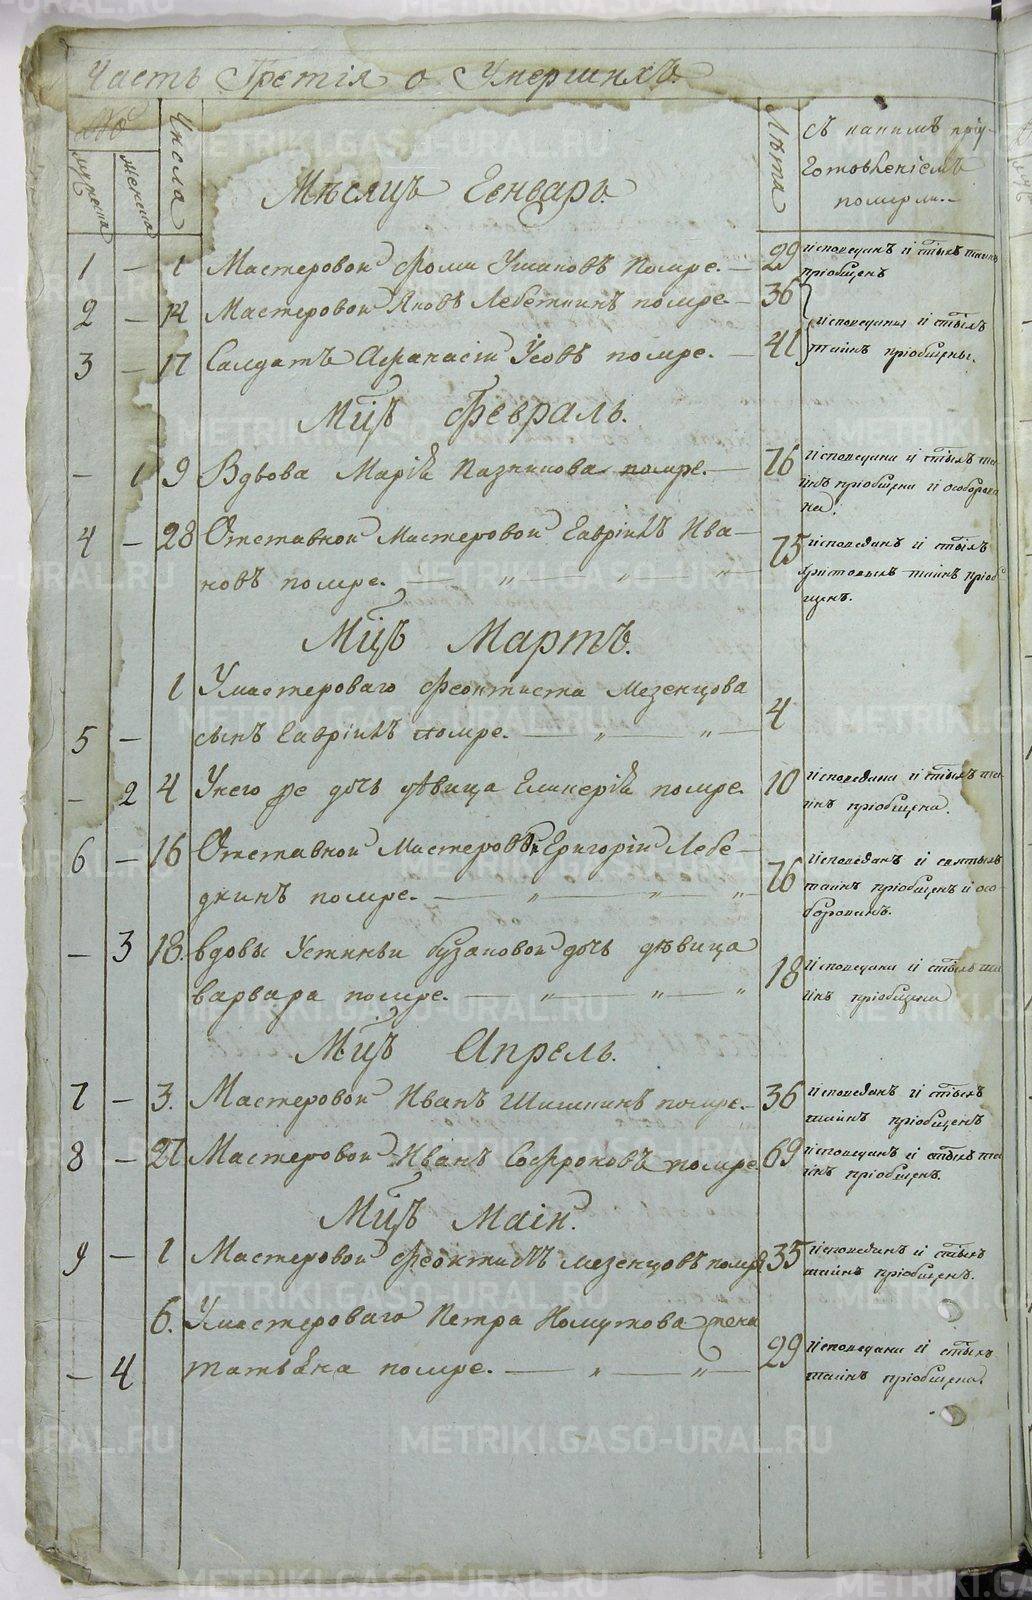 Часть Третія о Умершихъ.
No
мужеска
женска
Числа
Лѣта
съ какимъ прiу-
готовленiемъ
померли.
Мѣсяцъ Генварь.
1 — 1 Мастеровой Фома Ушаковъ помре. — 29 исповеданъ и стыхъ таинъ
прiобщенъ
2 — 14 Мастеровой Яковъ Лебеткинъ помре — 36
3 — 17 Салдатъ Афанасiй Усовъ помре. — 41 исповеданы и стыхъ
таинъ прiобщены.
Мцъ Февраль.
— 1 9 Вдова Марiя Казанкова помре. — 76 исповедана и стыхъ та
инъ прiобщена и особорова
на.
4 — 28 Отставной Мастеровой Гаврiилъ Ива—
новъ помре. — „ — „ — „ 75 исповеданъ и стыхъ
христовыхъ таинъ прiоб
щенъ.
Мцъ Мартъ.
1 Умастероваго Феоктиста Мезенцова
5 — сынъ Гаврiилъ помре. — „ — „ — 4
— 2 4 Унего же дочь дѣвица Гликерiя помре. 10 исповедана и стыхъ та
инъ прiобщена.
6 — 16 Отставной Мастеровой Григорiй Лебе—
дкинъ помре. — „ — „ — „ 76 исповеданъ и святыхъ
таинъ прiобщенъ и осо
борованъ.
— 3 18. вдовы Устиньи Бузановой дочь дѣвица
варвара помре. — „ — „ — „ 18 исповедана и стыхъ та
инъ прiобщена
Мцъ Апрель.
7 — 3. Мастеровой Иванъ Шишкинъ помре. — 36 исповеданъ и стыхъ
таинъ прiобщенъ
8 — 27 Мастеровой Иванъ Софроновъ помре 69 исповеданъ и стыхъ та
инъ прiобщенъ.
Мцъ Маiй.
9 — 1 Мастеровой Феоктистъ мезенцовъ помре 35 исповеданъ и стыхъ
таинъ прiобщенъ.
6. Умастероваго Петра Хомутова жена
— 4 татьяна помре. — „ — „ — 29 исповедана и стыхъ
таинъ прiобщена.
METRIKI.GASO-URAL.RU